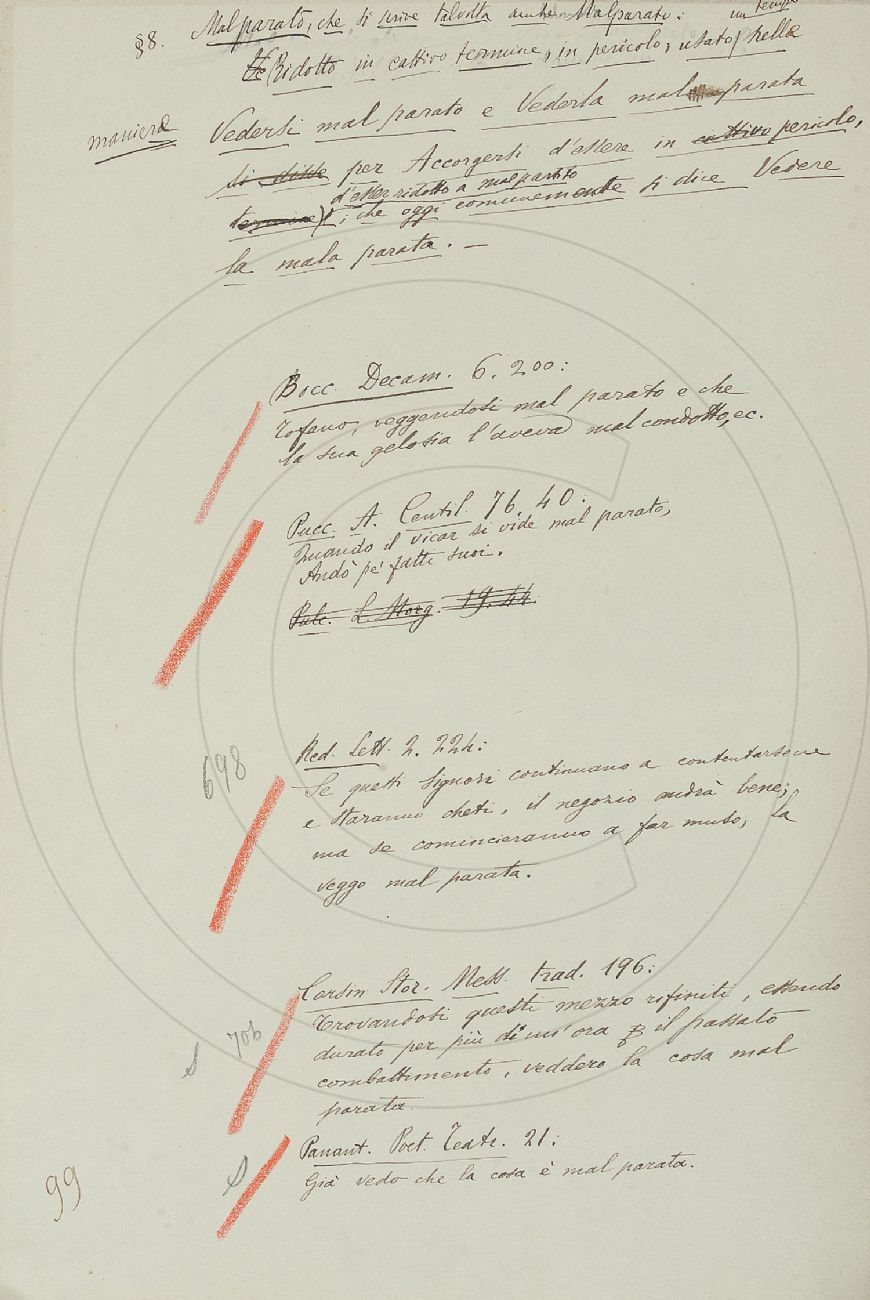 §8. Mal parato, che si scrive talvolta anche Malparato: un tempo
Ridotto in cattivo termine, in pericolo, usato nella
maniera Vedersi mal parato e Vederla mal parata
si disse per Accorgersi d'essere in cattivo pericolo,
d'esser ridotto a mal partito
termine); che oggi comunemente si dice Vedere
la mala parata. —
Bocc. Decam. 6. 200:
Tofano, veggendosi mal parato e che
la sua gelosia l'aveva mal condotto, ec.
Pucc. A. Centil. 76, 40:
Quando il vicar si vide mal parato,
Andò pe' fatti suoi.
Pulc. L. Morg. 19. 44
698
Red. Lett. 2. 224:
Se questi Signori continuano a contentarsene
e staranno cheti, il negozio andrà bene;
ma se cominceranno a far muso, la
veggo mal parata.
Corsin. Stor. Mess. trad. 196:
Trovandosi questi mezzo rifiniti, essendo
706
durato per più di un'ora il passato
combattimento, veddero la cosa mal
parata.
Panant. Poet. Teatr. 21:
Già vedo che la cosa è mal parata.
99